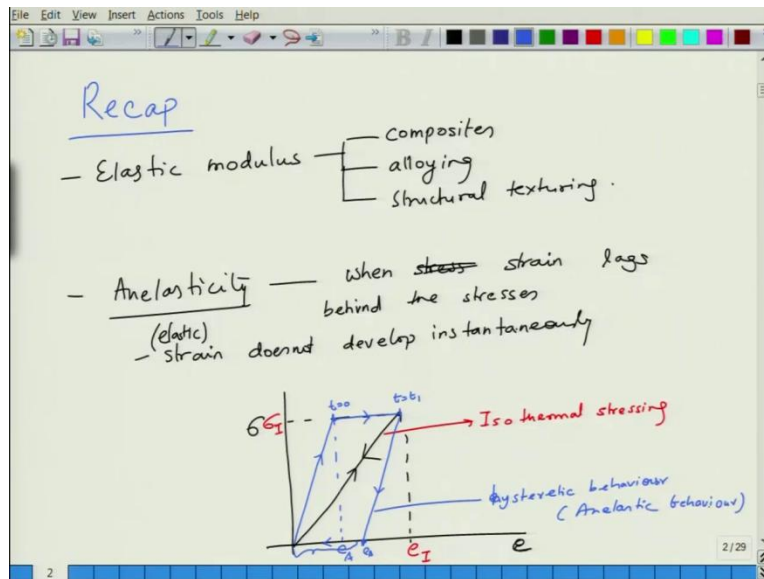 File Edit View Insert Actions Tools Help
Recap
- Elastic modulus
composites
alloying
structural texturing.
- Anelasticity — when stress strain lags
behind the stresses
(elastic)
- strain doesnot develop instantaneously
t=0
t=t1
σ σI
Isothermal stressing
hysteretic behaviour
(Anelastic behaviour)
eA
eI
e
2/29
2